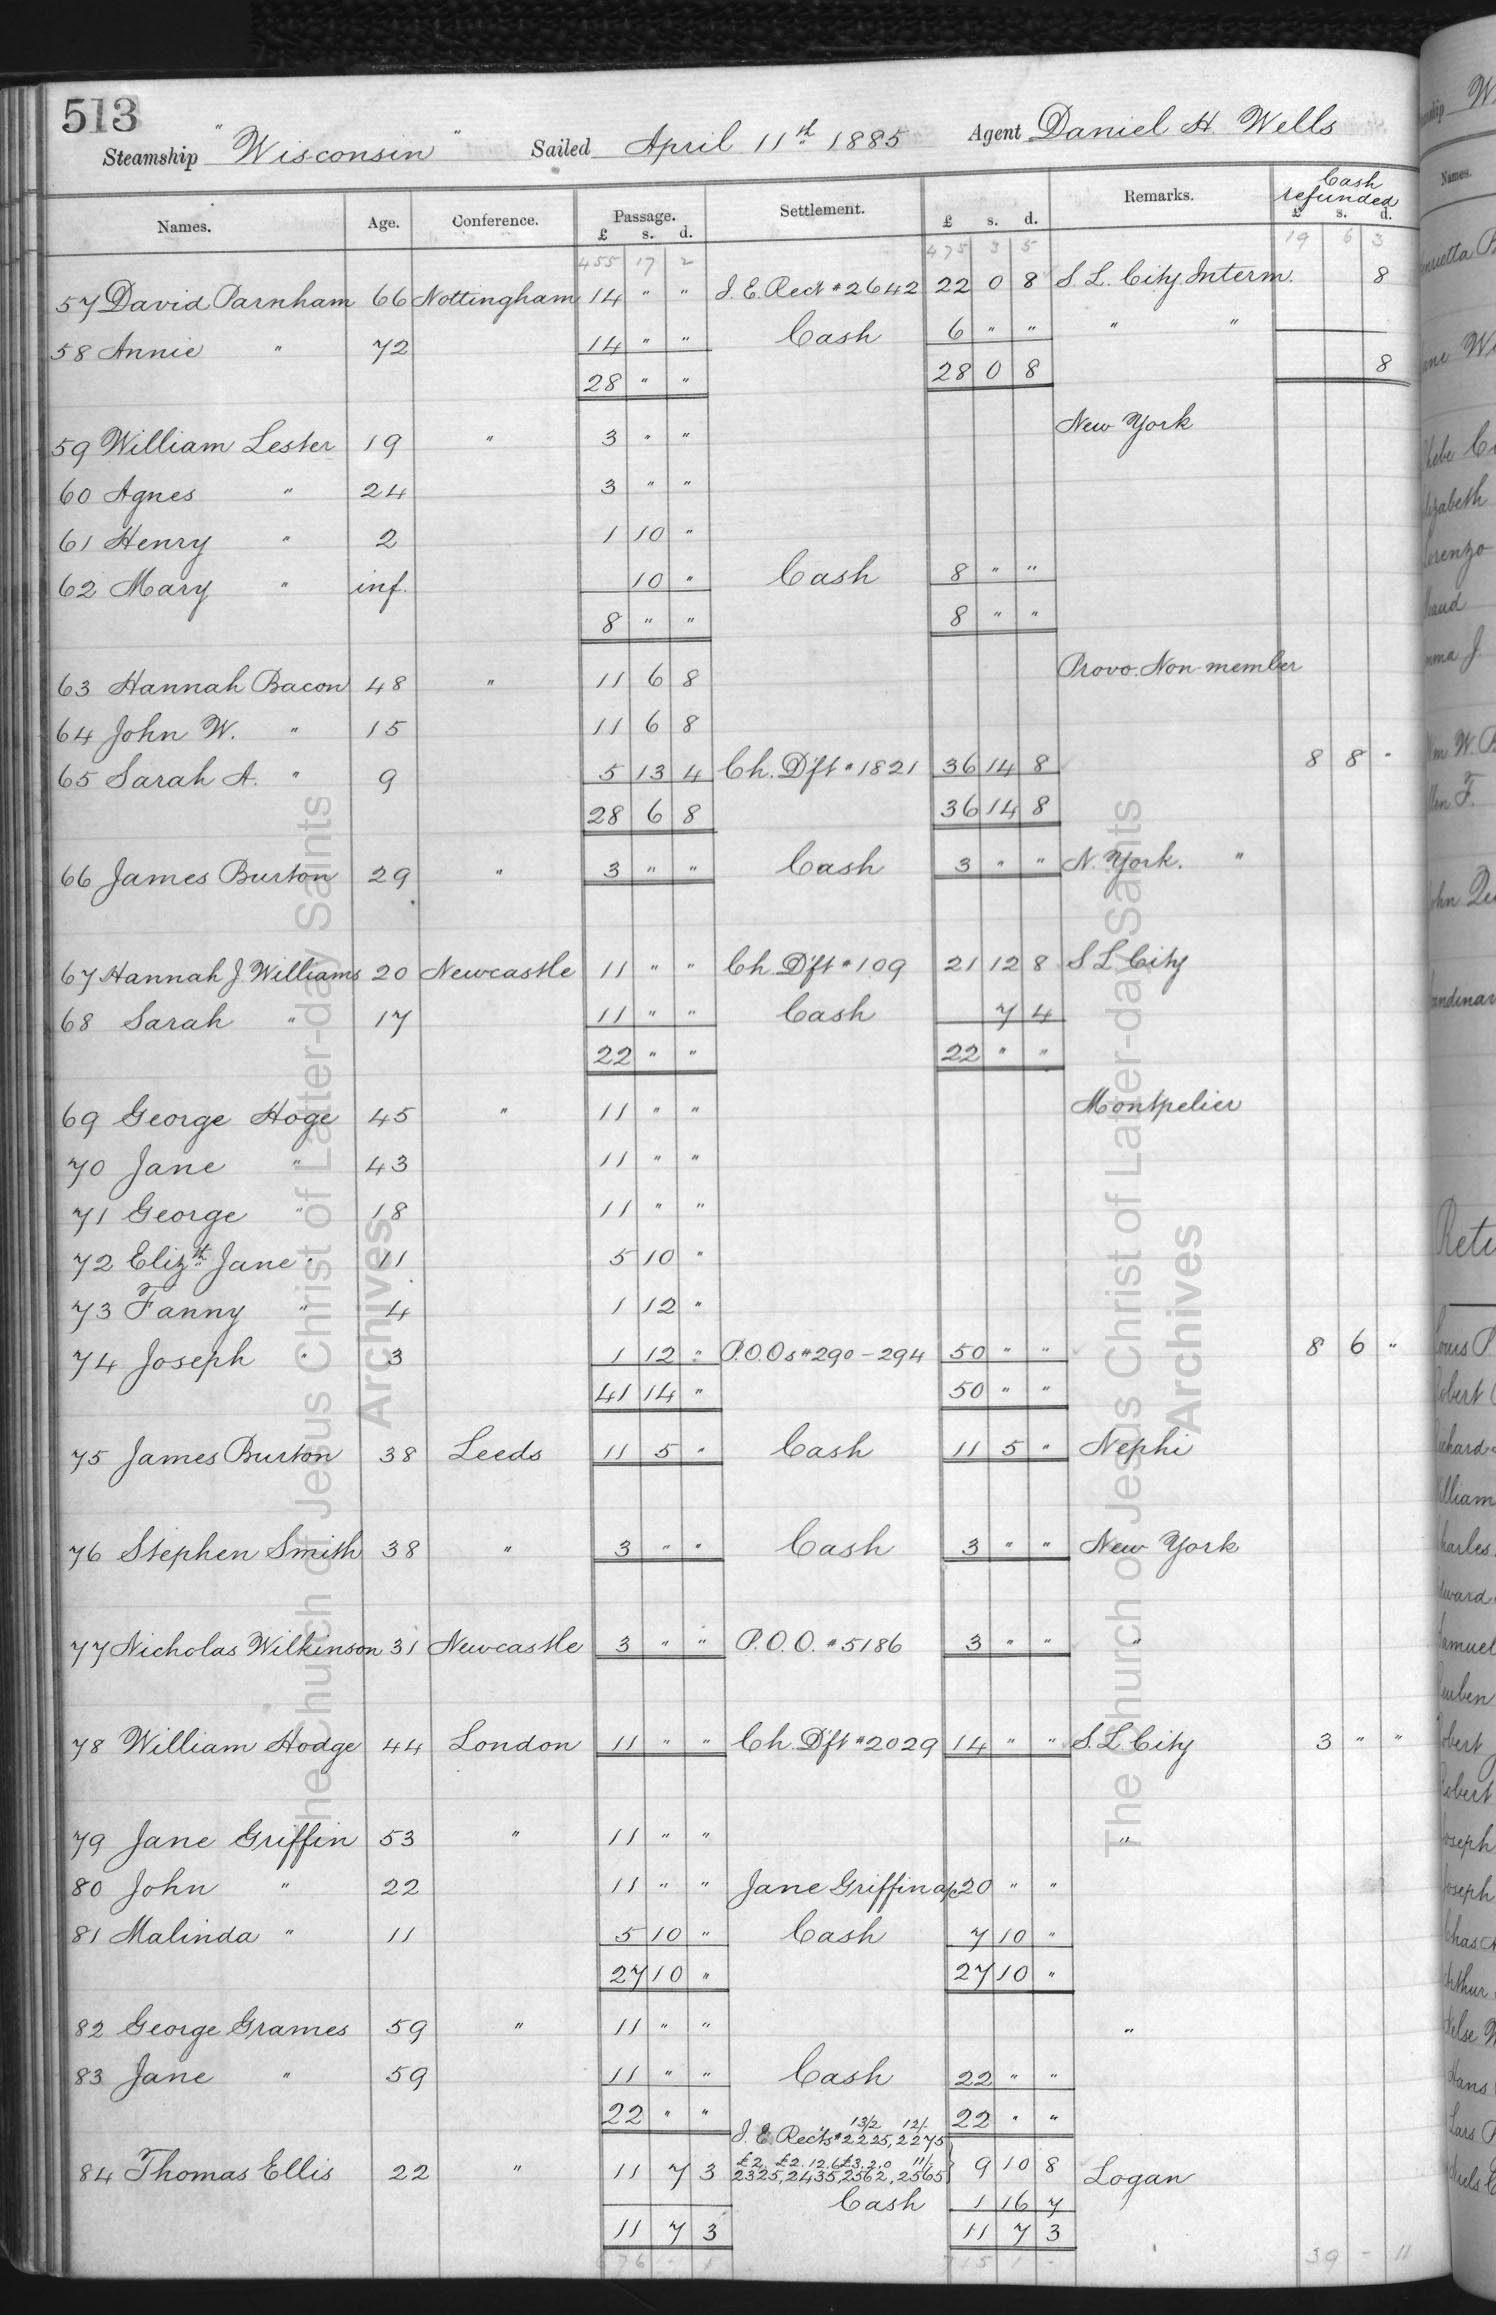 513
Steamship "Wisconsin" Sailed April 11th 1885 Agent Daniel H Wells
Names. Age. Conference. Passage. £ s. d. Settlement. £ s. d. Remarks. Cash refunded £ s. d.
455 17 2 475 3 5 19 6 3
57 David Parnham 66 Nottingham 14 " " I. E. Rect #2642 22 0 8 S. L. City Interm. 8
58 Annie " 72 14 " " Cash 6 " " " "
28 " " 28 0 8 8
59 William Lester 19 " 3 " " New York
60 Agnes " 24 3 " "
61 Henry " 2 1 10 "
62 Mary " inf. 10 " Cash 8 " "
8 " " 8 " "
63 Hannah Bacon 48 " 11 6 8 Provo. Non-member
64 John W. " 15 11 6 8
65 Sarah A. " 9 5 13 4 Ch. Dft #1821 36 14 8 8 8 "
28 6 8 36 14 8
66 James Burton 29 " 3 " " Cash 3 " " N. York. "
67 Hannah J. Williams 20 Newcastle 11 " " Ch. Dft #109 21 12 8 S L City
68 Sarah " 17 11 " " Cash 7 4
22 " " 22 " "
69 George Hoge 45 " 11 " " Montpelier
70 Jane " 43 11 " "
71 George " 18 11 " "
72 Elizth Jane " 11 5 10 "
73 Fanny " 4 1 12 "
74 Joseph " 3 1 12 " P.O.Os #290-294 50 " " 8 6 "
41 14 " 50 " "
75 James Burton 38 Leeds 11 5 " Cash 11 5 " Nephi
76 Stephen Smith 38 " 3 " " Cash 3 " " New York
77 Nicholas Wilkinson 31 Newcastle 3 " " P.O.O. #5186 3 " " "
78 William Hodge 44 London 11 " " Ch. Dft #2029 14 " " S. L. City 3 " "
79 Jane Griffin 53 " 11 " " "
80 John " 22 11 " " Jane Griffin a/c 20 " "
81 Malinda " 11 5 10 " Cash 7 10 "
27 10 " 27 10 "
82 George Grames 59 " 11 " " "
83 Jane " 59 11 " " Cash 22 " "
22 " " 22 " "
13/2 12/-
I. E. Rects #2225, 2275
£2. £2.12.6 £3.2.0 11/-
84 Thomas Ellis 22 " 11 7 3 2325, 2435, 2562, 2565 } 9 10 8 Logan
Cash 1 16 7
11 7 3 11 7 3
676 - 1 715 1 - 39 - 11
The Church of Jesus Christ of Latter-day Saints
Archives
The Church of Jesus Christ of Latter-day Saints
Archives